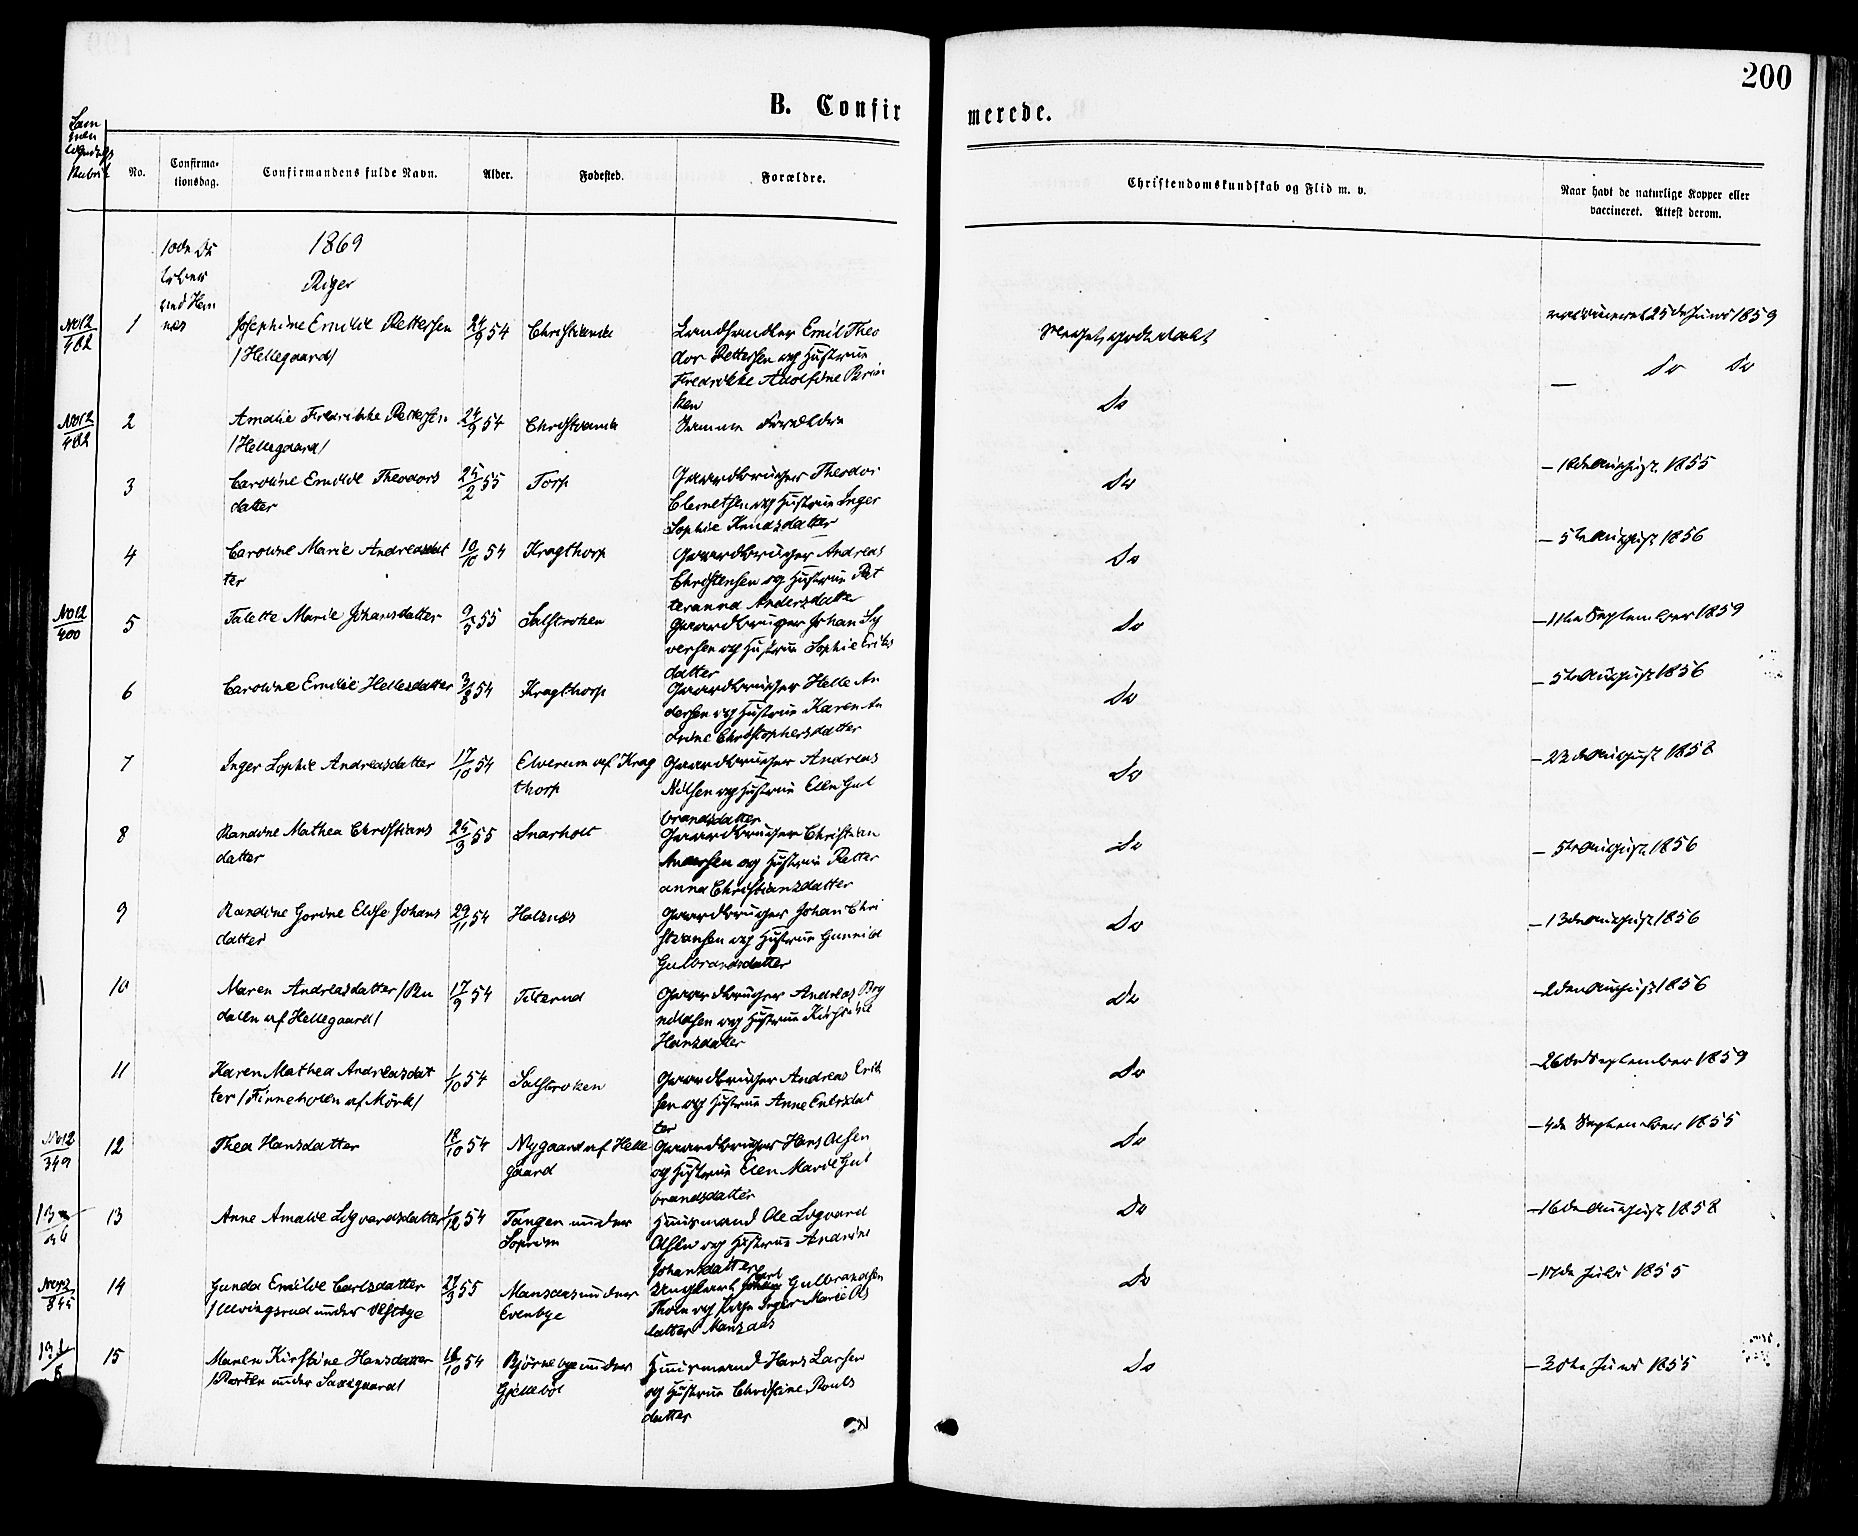 200
B. Confir merede.
No.
Confirma-
tionsdag.
Confirmandens fulde Navn.
Alder.
Fødested.
Forældre.
Christendomskundskab og Flid m. v.
Naar havt de naturlige Kopper eller
vaccineret. Attest derom.
1869
Piger
No 12
482
1
Josephine Emilie Pettersen
/Hellegaard/
24/9 54
Christiania
Landhandler Emil Theo
dor Pettersen og Hustrue
Fredrikke Adolfine
Meget godt
vaccineret 25de Juni 1859
No 12
482
2
Amalie Fredrikke Pettersen
/Hellegaard/
24/9 54
Christiania
Samme Forældre
Do
— Do Do
3
Caroline Emilie Theodors
datter
25/2 55
Torp
Gaardbruger Theodor
Clemetsen og Hustrue Inger
Sophie Knudsdatter
Do
August 1855
4
Caroline Marie Andreasdat
ter
10/10 54
Kragthorp
Gaardbruger Andreas
Christensen og Hustrue Pet
teranna Andersdatter
Do
— 5te August 1856
No 12
400
5
Talette Marie Johansdatter
9/5 55
Gaardbruger Johan Sy
versen og Hustrue Sophie Eriks
datter
Do
— 11te September 1859
6
Caroline Emilie Hellesdatter
3/8 54
Kragthorp
Gaardbruger Helle An
dersen og Hustrue Karen An
drine Christophersdatter
Do
— 5te August 1856
7
Inger Sophie Andreasdatter
17/10 54
Elverum af Krag
thorp
Gaardbruger Andreas
Nilsen og Hustrue Ellen Gul
brandsdatter
Do
— 22de August 1858
8
Randine Mathea Christians
datter
25/3 55
Snarholt
Gaardbruger Christian
Andersen og Hustrue Petter
anna Christiansdatter
Do
— 5te August 1856
9
Randine Gorine Elise Johans
datter
29/11 54
Holsnæs
Gaardbruger Johan Chri
stiansen og Hustrue Gunnild
Gulbrandsdatter
Do
— 13de August 1856
10
Maren Andreasdatter
af Hellegaard/
17/9 54
Gaardbruger Andreas Bry
nildsen og Hustrue
Hansdatter
Do
August 1856
11
Karen Mathea Andreasdat
ter /Finneholen af Mörk/
1/10 54
Gaardbruger Andreas Erik
sen og Hustrue Anne
ter
Do
— 26de September 1859
No 12
349
12
Thea Hansdatter
18/10 54
Nygaard af Helle
gaard
Gaardbruger Hans Olsen
og Hustrue Elen Marie Gul
brandsdatter
Do
— 4de September 1855
13
Anne Amalie Sigvardsdatter
54
Tangen under
Huusmand Ole Sigvard
Olsen og Hustrue Andrine
Johansdatter
Do
— 16de August 1858
No 12
845
14
Gunda Emilie Carlsdatter
under
55
Mansaas under
Evenbye
Ungkarl Carl Gulbrandsen
og Pige Inger Marie Ols
datter Mansaas
Do
— 17de Juli 1855
15
Maren Kirstine Hansdatter
under
18/10 54
Bjørnebye under
Gjellebøl
Huusmand Hans Larsen
og Hustrue Christine Pouls
datter
Do
Juni 1855